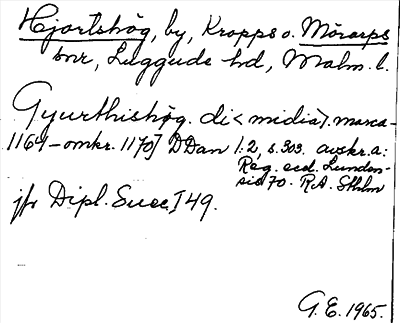 Hjortshög, by, Kropps o. Mörarps
snr, Luggude hd, Malm. l.
Gyurthishøg. di<midia>. marca-
1164-omkr. 1170] DDan 1:2, s. 303. avskr. a:
Reg. eccl. Lunden-
sis 70. R.A. Sthlm
jfr Dipl. Suec. I 49.
G.E. 1965.